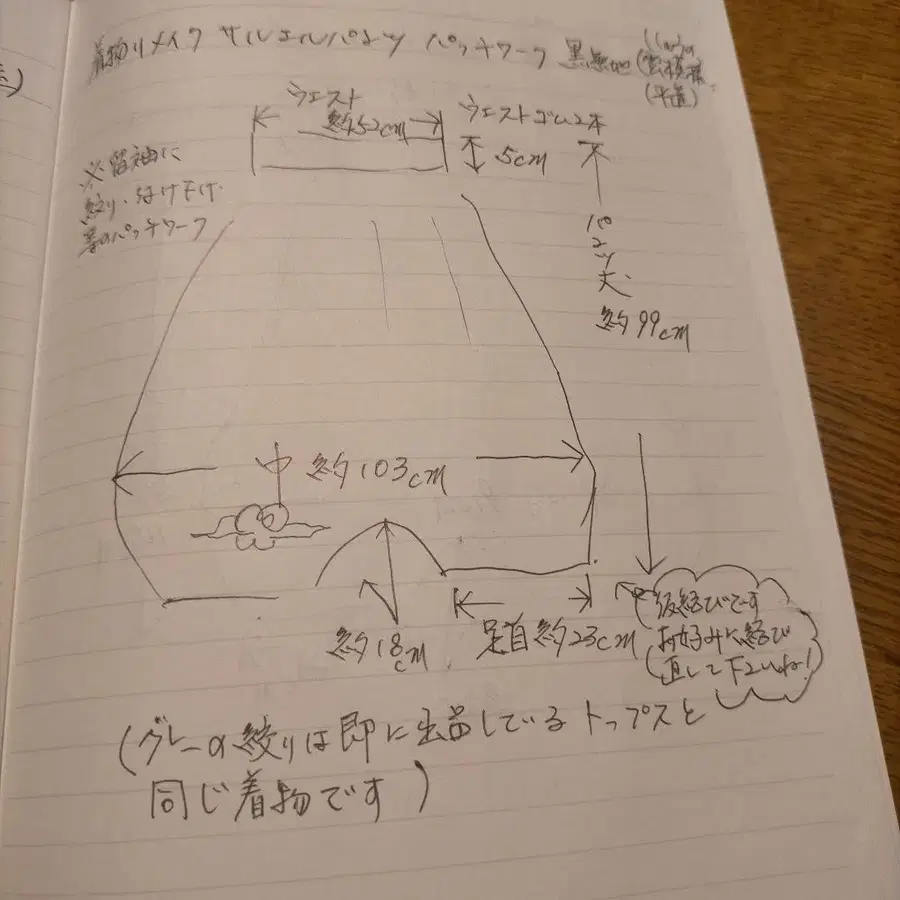 着物リメイク サルエルパンツ パッチワーク 黒無地
ウエスト
約52cm
ウエストゴム2本
5cm
※留袖に
絞り・付け下げ
等のパッチワーク
パンツ丈
約99cm
巾 約103cm
約18cm
足首 約23cm
仮結びです
お好みに結び
直して下さいね!
(グレーの絞りは即に出品しているトップスと
同じ着物です)